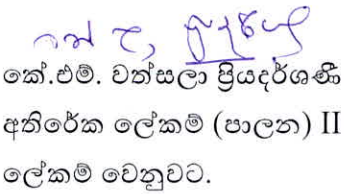 කේ.එම්. වත්සලා ප්‍රියදර්ශණී
අතිරේක ලේකම් (පාලන) II
ලේකම් වෙනුවට.